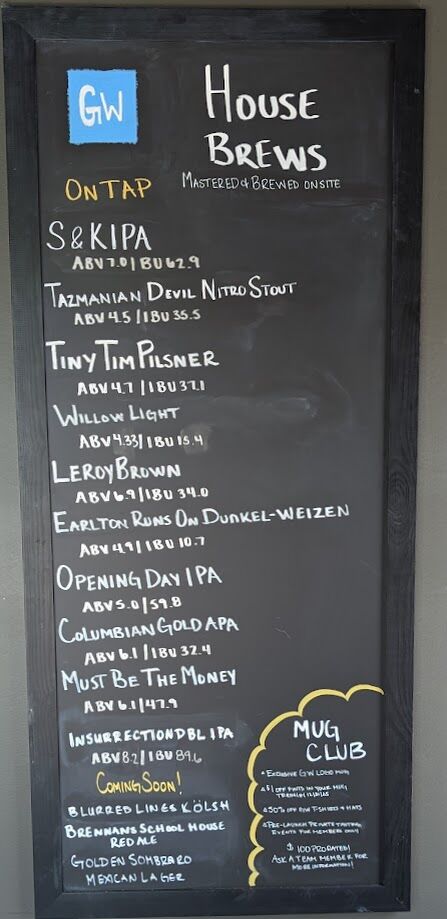 GW
HOUSE
BREWS
MASTERED & BREWED ONSITE
ON TAP
S & K IPA
ABV 7.0 | IBU 62.9
TAZMANIAN DEVIL NITRO STOUT
ABV 4.5 / IBU 35.5
TINY TIM PILSNER
ABV 4.7 / IBU 37.1
WILLOW LIGHT
ABV 4.33 / IBU 15.4
LEROY BROWN
ABV 6.9 / IBU 34.0
EARLTON RUNS ON DUNKEL-WEIZEN
ABV 4.9 / IBU 10.7
OPENING DAY IPA
ABV 5.0 | 59.8
COLUMBIAN GOLD APA
ABV 6.1 / IBU 32.4
MUST BE THE MONEY
ABV 6.1 / 47.9
INSURRECTION DBL IPA
ABV 8.2 / IBU 89.6
COMING SOON!
BLURRED LINES KÖLSH
BRENNANS SCHOOL HOUSE
RED ALE
GOLDEN SOMBRARO
MEXICAN LAGER
MUG
CLUB
EXCLUSIVE GW LOGO MUG
$1 OFF PINTS IN YOUR MUG
THROUGH
50% OFF GW T-SHIRTS & HATS
PRE-LAUNCH PRIVATE TASTING
EVENTS FOR MEMBERS ONLY
$100 PRORATED!
ASK A TEAM MEMBER FOR
MORE INFORMATION!